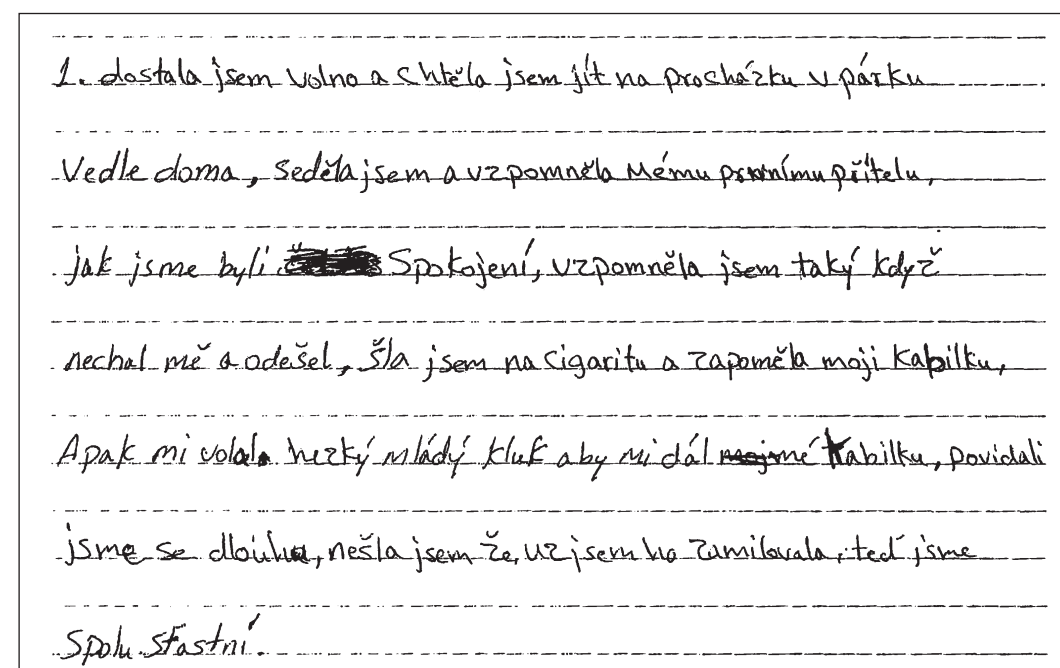 1. dostala jsem volno a chtěla jsem jít na procházku v párku
Vedle doma, seděla jsem a vzpomněla Mému prvnímu přítelu,
jak jsme byli Spokojení, vzpomněla jsem taký když
nechal mě a odešel, šla jsem na cigaritu a zapoměla moji Kabilku,
A pak mi volal hezký mládý kluk aby mi dál mé Kabilku, povidali
jsme se dlouho, nešla jsem že, uz jsem ho zamilovala, teď jsme
Spolu sťastní.